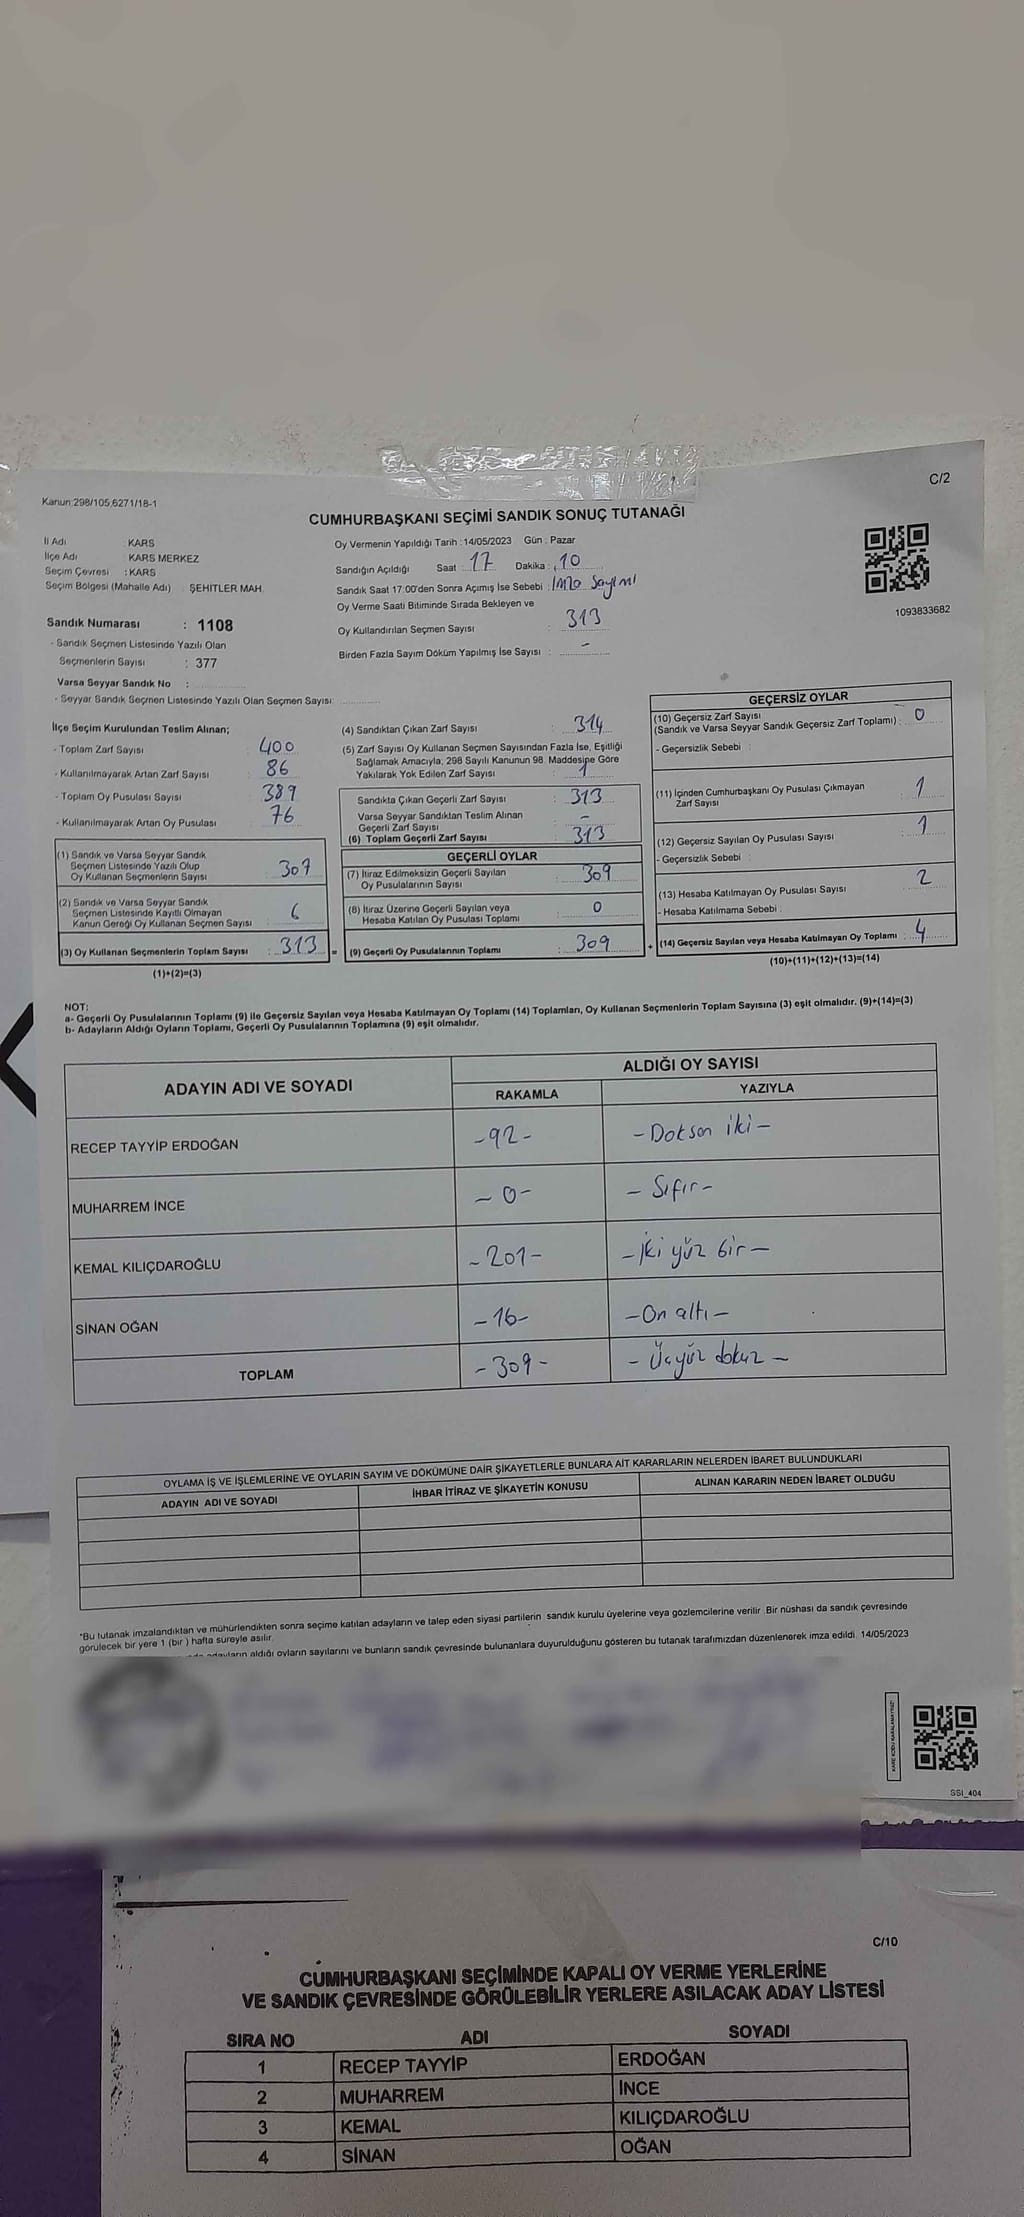 C/2
Kanun:298/105,6271/18-1
CUMHURBAŞKANI SEÇİMİ SANDIK SONUÇ TUTANAĞI
İl Adı KARS
İlçe Adı KARS MERKEZ
Seçim Çevresi : KARS
Seçim Bölgesi (Mahalle Adı) ŞEHİTLER MAH.
Sandık Numarası : 1108
- Sandık Seçmen Listesinde Yazılı Olan
Seçmenlerin Sayısı : 377
Varsa Seyyar Sandık No :
- Seyyar Sandık Seçmen Listesinde Yazılı Olan Seçmen Sayısı:
Oy Vermenin Yapıldığı Tarih : 14/05/2023 Gün : Pazar
Sandığın Açıldığı Saat : 17 Dakika : 10
Sandık Saat 17:00'den Sonra Açımış İse Sebebi : İmza Sayımı
Oy Verme Saati Bitiminde Sırada Bekleyen ve
Oy Kullandırılan Seçmen Sayısı : 313
Birden Fazla Sayım Döküm Yapılmış İse Sayısı : -
1093833682
İlçe Seçim Kurulundan Teslim Alınan;
- Toplam Zarf Sayısı : 400
- Kullanılmayarak Artan Zarf Sayısı : 86
- Toplam Oy Pusulası Sayısı : 389
- Kullanılmayarak Artan Oy Pusulası : 76
(1) Sandık ve Varsa Seyyar Sandık
Seçmen Listesinde Yazılı Olup
Oy Kullanan Seçmenlerin Sayısı : 307
(2) Sandık ve Varsa Seyyar Sandık
Seçmen Listesinde Kayıtlı Olmayan
Kanun Gereği Oy Kullanan Seçmen Sayısı : 6
(3) Oy Kullanan Seçmenlerin Toplam Sayısı : 313 =
(1)+(2)=(3)
(4) Sandıktan Çıkan Zarf Sayısı : 314
(5) Zarf Sayısı Oy Kullanan Seçmen Sayısından Fazla İse, Eşitliği
Sağlamak Amacıyla; 298 Sayılı Kanunun 98. Maddesine Göre
Yakılarak Yok Edilen Zarf Sayısı : 1
Sandıkta Çıkan Geçerli Zarf Sayısı : 313
Varsa Seyyar Sandıktan Teslim Alınan
Geçerli Zarf Sayısı : -
(6) Toplam Geçerli Zarf Sayısı : 313
GEÇERLİ OYLAR
(7) İtiraz Edilmeksizin Geçerli Sayılan
Oy Pusulalarının Sayısı : 309
(8) İtiraz Üzerine Geçerli Sayılan veya
Hesaba Katılan Oy Pusulası Toplamı : 0
(9) Geçerli Oy Pusulalarının Toplamı : 309 +
GEÇERSİZ OYLAR
(10) Geçersiz Zarf Sayısı
(Sandık ve Varsa Seyyar Sandık Geçersiz Zarf Toplamı) : 0
- Geçersizlik Sebebi :
(11) İçinden Cumhurbaşkanı Oy Pusulası Çıkmayan
Zarf Sayısı : 1
(12) Geçersiz Sayılan Oy Pusulası Sayısı : 1
- Geçersizlik Sebebi :
(13) Hesaba Katılmayan Oy Pusulası Sayısı : 2
- Hesaba Katılmama Sebebi :
(14) Geçersiz Sayılan veya Hesaba Katılmayan Oy Toplamı : 4
(10)+(11)+(12)+(13)=(14)
NOT:
a- Geçerli Oy Pusulalarının Toplamı (9) ile Geçersiz Sayılan veya Hesaba Katılmayan Oy Toplamı (14) Toplamları, Oy Kullanan Seçmenlerin Toplam Sayısına (3) eşit olmalıdır. (9)+(14)=(3)
b- Adayların Aldığı Oyların Toplamı, Geçerli Oy Pusulalarının Toplamına (9) eşit olmalıdır.
ADAYIN ADI VE SOYADI ALDIĞI OY SAYISI
RAKAMLA YAZIYLA
RECEP TAYYİP ERDOĞAN -92- -Doksan iki-
MUHARREM İNCE -0- -Sıfır-
KEMAL KILIÇDAROĞLU -201- -İki yüz bir-
SİNAN OĞAN -16- -On altı-
TOPLAM -309- -Üçyüz dokuz-
OYLAMA İŞ VE İŞLEMLERİNE VE OYLARIN SAYIM VE DÖKÜMÜNE DAİR ŞİKAYETLERLE BUNLARA AİT KARARLARIN NELERDEN İBARET BULUNDUKLARI
ADAYIN ADI VE SOYADI İHBAR İTİRAZ VE ŞİKAYETİN KONUSU ALINAN KARARIN NEDEN İBARET OLDUĞU
*Bu tutanak imzalandıktan ve mühürlendikten sonra seçime katılan adayların ve talep eden siyasi partilerin sandık kurulu üyelerine veya gözlemcilerine verilir. Bir nüshası da sandık çevresinde
görülecek bir yere 1 (bir) hafta süreyle asılır.
adayların aldığı oyların sayılarını ve bunların sandık çevresinde bulunanlara duyurulduğunu gösteren bu tutanak tarafımızdan düzenlenerek imza edildi. 14/05/2023
KARE KODU KARALAMAYINIZ!
SSI_404
C/10
CUMHURBAŞKANI SEÇİMİNDE KAPALI OY VERME YERLERİNE
VE SANDIK ÇEVRESİNDE GÖRÜLEBİLİR YERLERE ASILACAK ADAY LİSTESİ
SIRA NO ADI SOYADI
1 RECEP TAYYİP ERDOĞAN
2 MUHARREM İNCE
3 KEMAL KILIÇDAROĞLU
4 SİNAN OĞAN